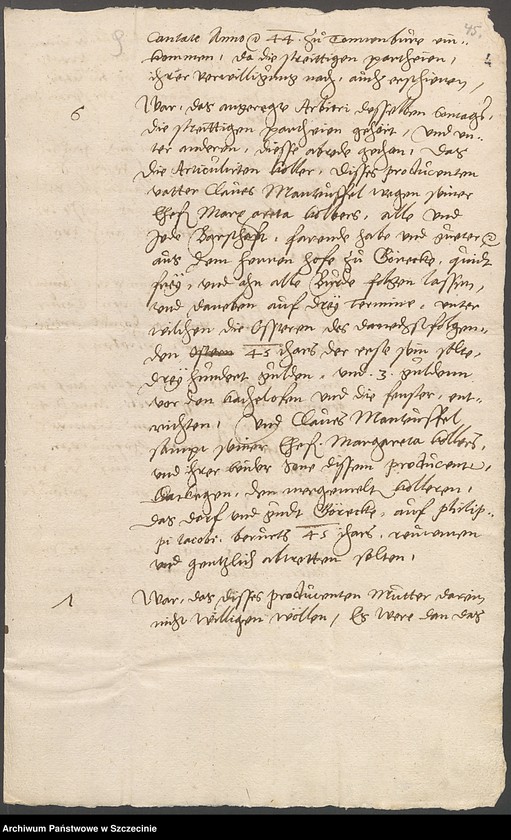 45.
Cantate Anno 44. zu Tomenburg ein-
kommen, da die streittigen partheien,
ihrer verwilligung nach, auch erschienen,
6 War, das angeregte Arbitri desselben
die streittigen partheien gehört, Und un-
ter anderen, diesse abrede gethan, Das
die Articulirten Koller, disses producenten
vatter Claues Manteuffel wegen seiner
Ehefr. Margareta Kollers, alle Und
Jede Barschafft, farende habe und güeter
aus dem herren hofe zu Görecke, quidt
frey, und ahn alle Bürde folgen lassen,
Und daneben auf drey termine, Unter
wilchen die Ossteren des danechstfolgen-
den 45 ihars der erste sein solte,
drey hundert gulden, und 3. gulden
vor den kachelofen und die fenster, ent-
richten, Und Claues Manteuffel
sampt seiner Ehefr. Margareta Kollers,
und ihrer beider Sone dissem producent,
dackegen, den mergemelt Kolleren,
das dorf und gudt Görecke, auf Philip-
pi Jacobi, berurts 45 ihars, reumen
und gentzlich abtretten solten,
1 War, das disses producenten Mutter darein
nicht willigen wollen, Es were dan das
Archiwum Państwowe w Szczecinie